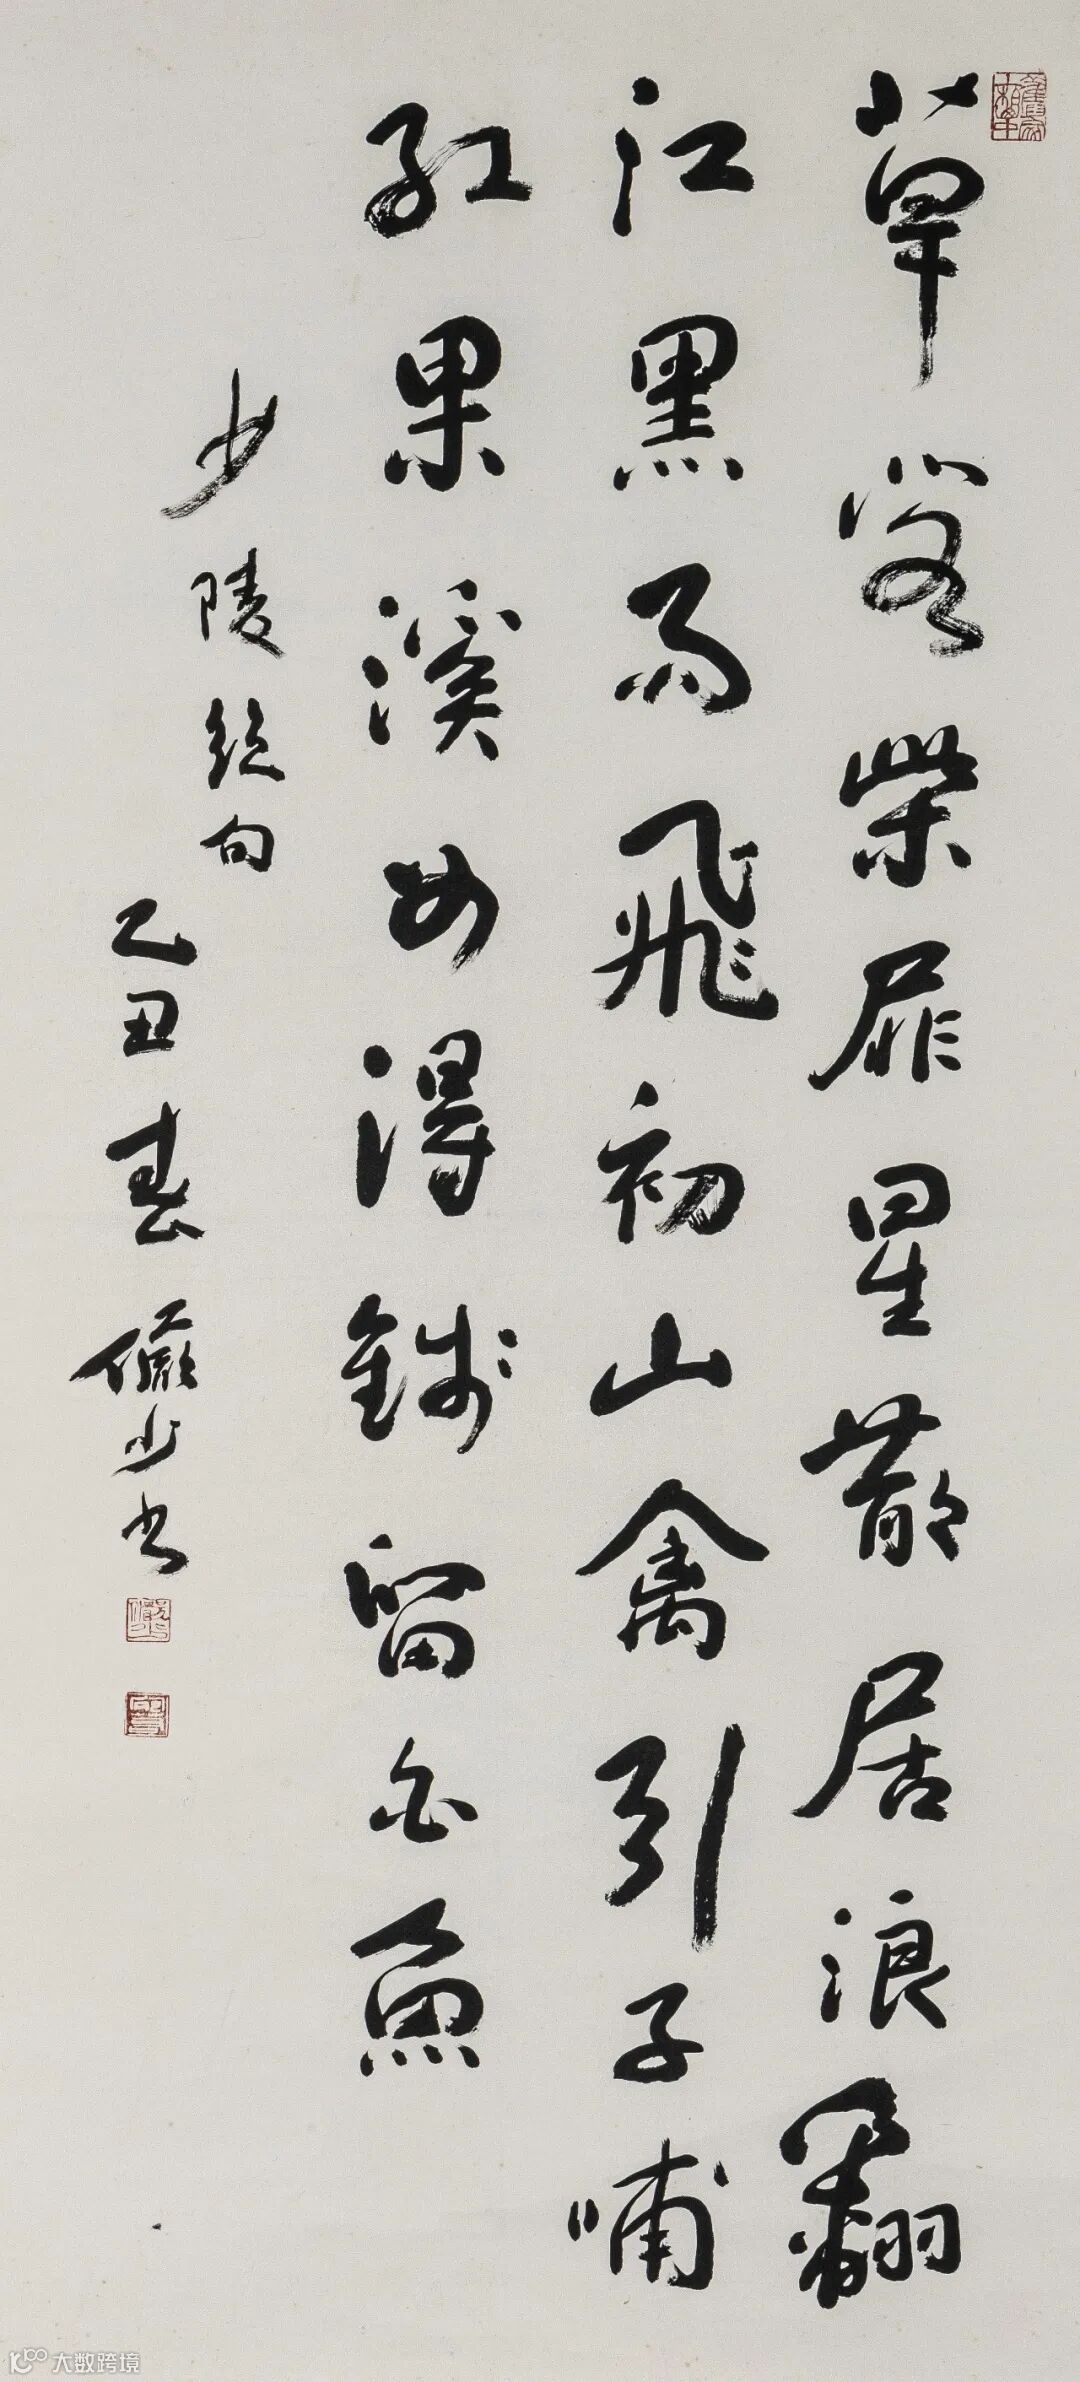 草閣柴扉星散居浪翻
江黑雨飛初山禽引子哺
紅果溪女得錢留白魚
少陵絕句
乙丑春儼少書
大数跨境